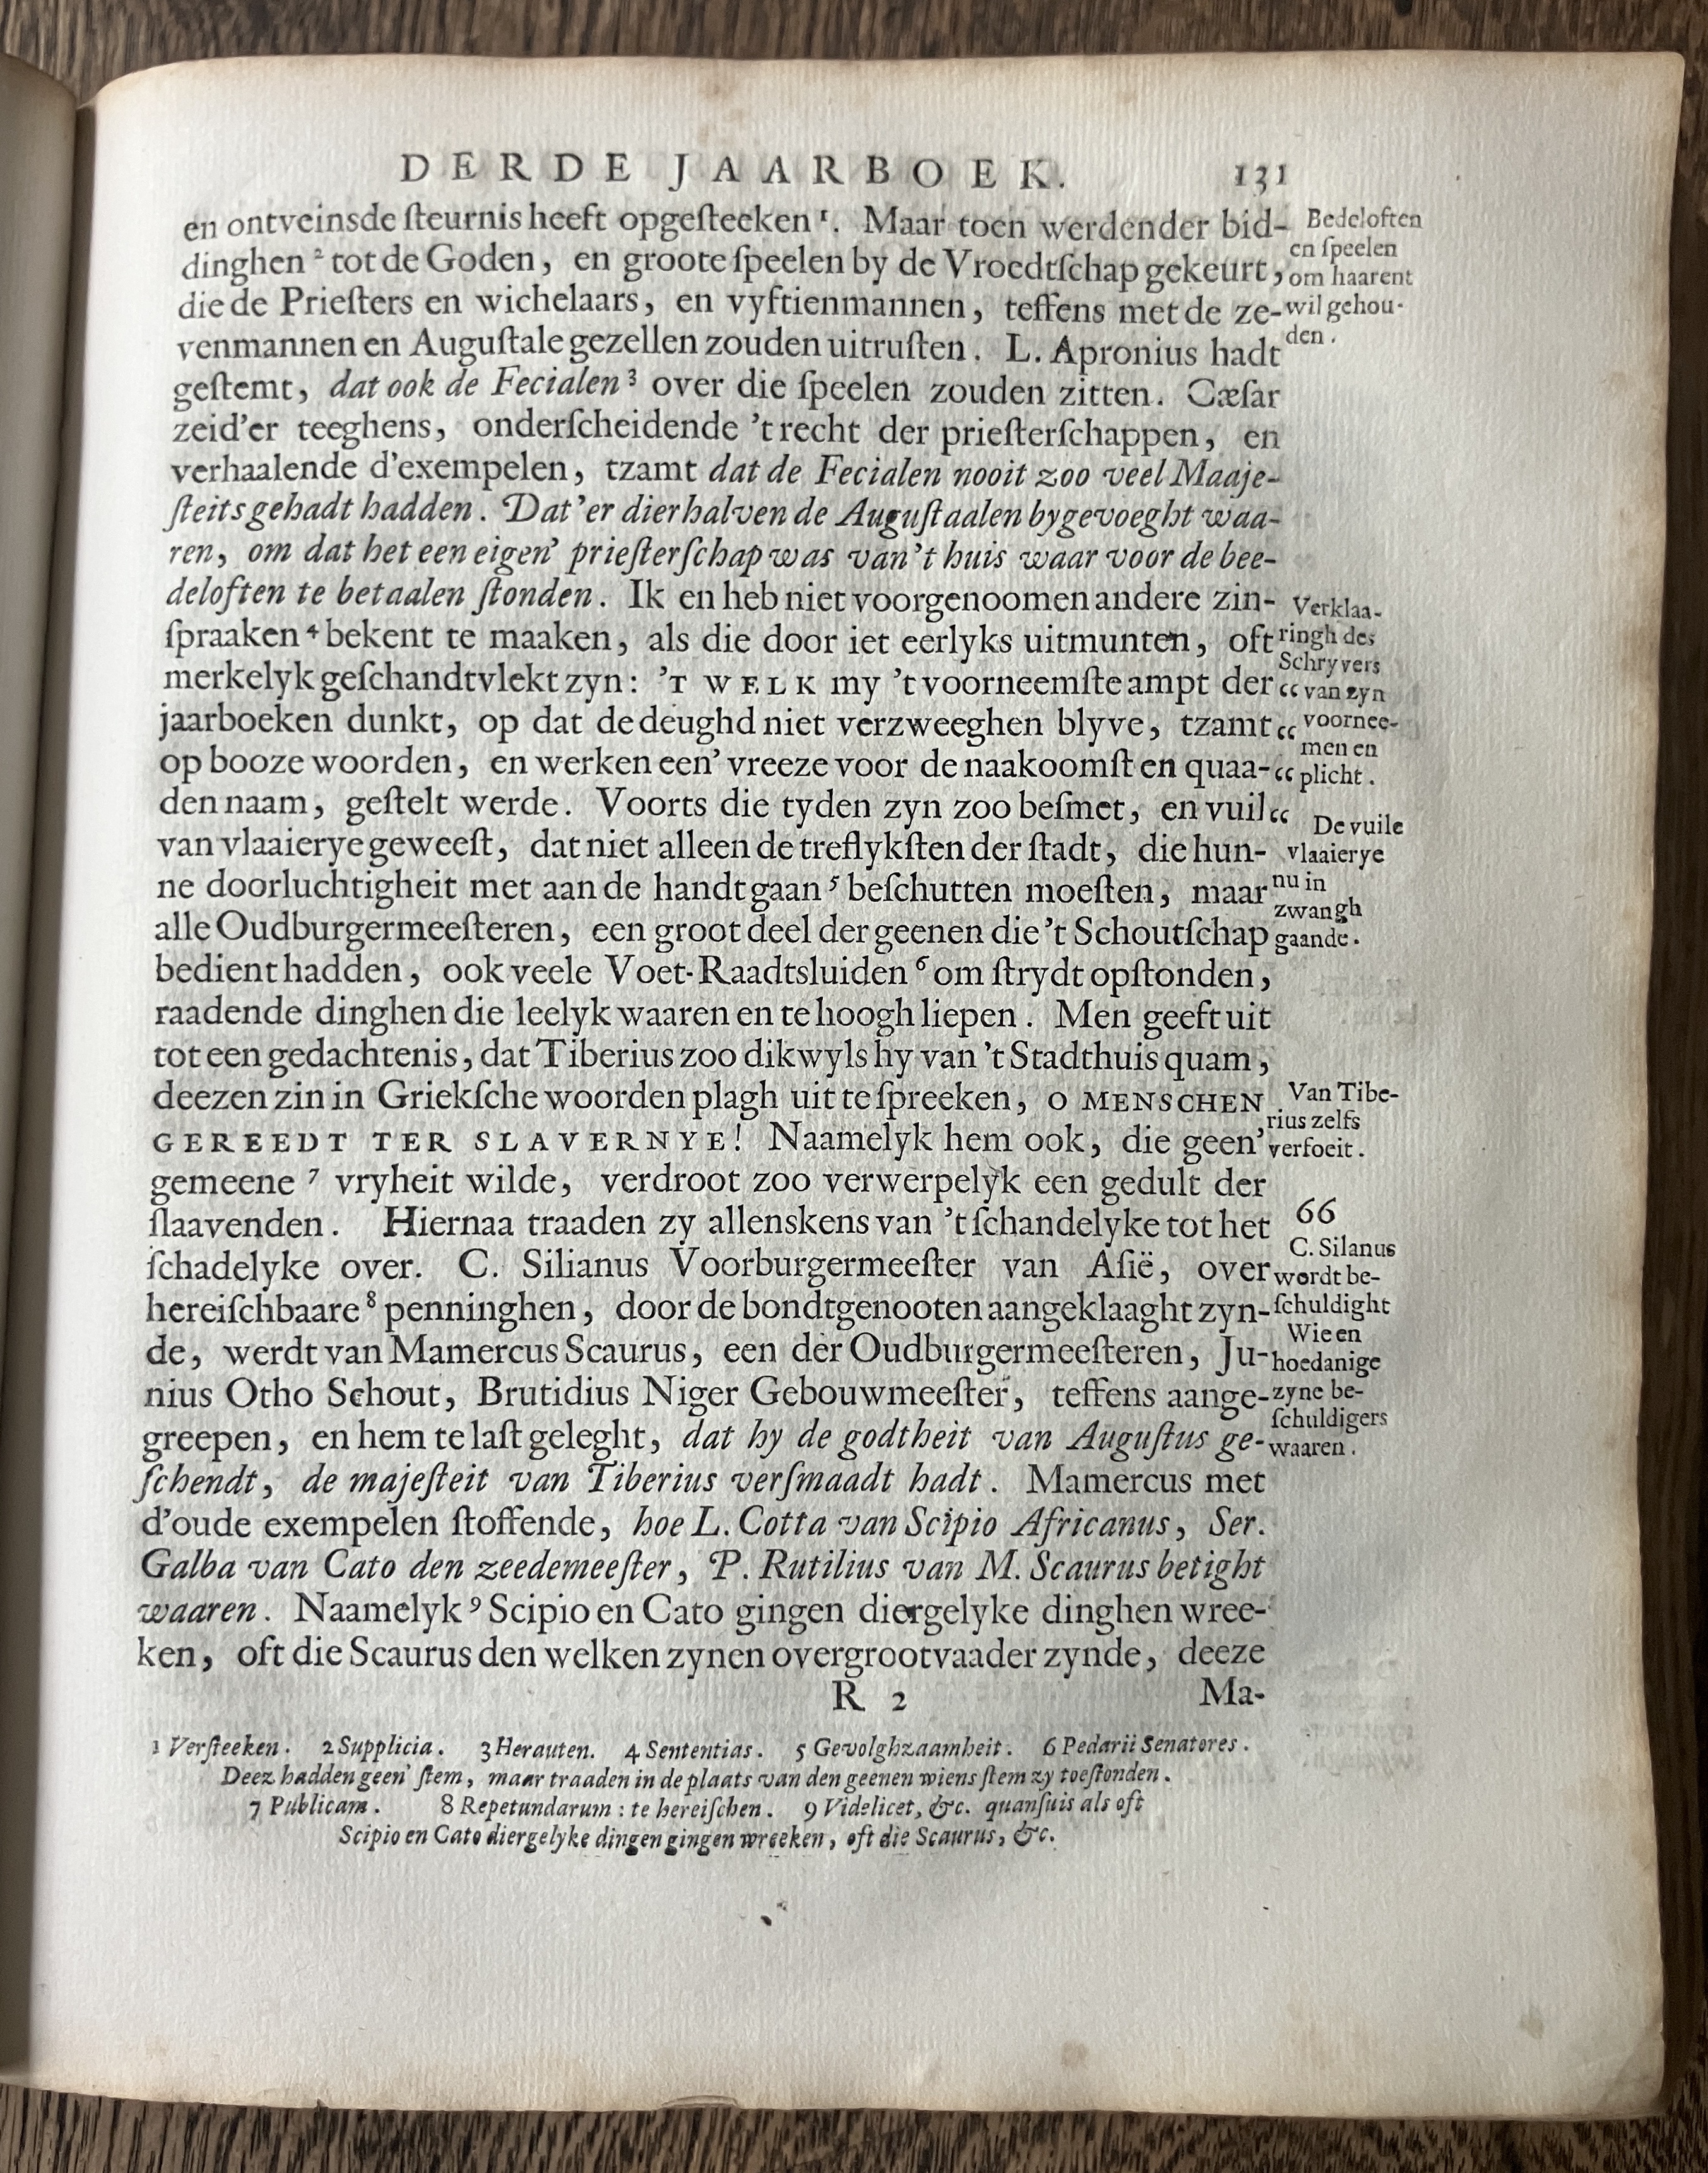 DERDE JAARBOEK. 131
en ontveinsde ſteurnis heeft opgeſteeken ¹. Maar toen werdender bid-
dinghen ² tot de Goden, en groote ſpeelen by de Vroedtſchap gekeurt,
die de Prieſters en wichelaars, en vyftienmannen, teffens met de ze-
venmannen en Auguſtale gezellen zouden uitruſten. L. Apronius hadt
geſtemt, dat ook de Fecialen ³ over die ſpeelen zouden zitten. Cæſar
zeid'er teeghens, onderſcheidende 't recht der prieſterſchappen, en
verhaalende d'exempelen, tzamt dat de Fecialen nooit zoo veel Maaje-
ſteits gehadt hadden. Dat'er dierhalven de Auguſtaalen bygevoeght waa-
ren, om dat het een eigen' prieſterſchap was van 't huis waar voor de bee-
deloften te betaalen ſtonden. Ik en heb niet voorgenoomen andere zin-
ſpraaken ⁴ bekent te maaken, als die door iet eerlyks uitmunten, oft
merkelyk geſchandtvlekt zyn: 'T WELK my 't voorneemſte ampt der “
jaarboeken dunkt, op dat de deughd niet verzweeghen blyve, tzamt “
op booze woorden, en werken een' vreeze voor de naakoomſt en quaa- “
den naam, geſtelt werde. Voorts die tyden zyn zoo beſmet, en vuil “
van vlaaierye geweeſt, dat niet alleen de treflykſten der ſtadt, die hun-
ne doorluchtigheit met aan de handt gaan ⁵ beſchutten moeſten, maar
alle Oudburgermeeſteren, een groot deel der geenen die 't Schoutſchap
bedient hadden, ook veele Voet-Raadtsluiden ⁶ om ſtrydt opſtonden,
raadende dinghen die leelyk waaren en te hoogh liepen. Men geeft uit
tot een gedachtenis, dat Tiberius zoo dikwyls hy van 't Stadthuis quam,
deezen zin in Griekſche woorden plagh uit te ſpreeken, O MENSCHEN
GEREEDT TER SLAVERNYE! Naamelyk hem ook, die geen'
gemeene ⁷ vryheit wilde, verdroot zoo verwerpelyk een gedult der
ſlaavenden. Hiernaa traaden zy allenskens van 't ſchandelyke tot het
ſchadelyke over. C. Silianus Voorburgermeeſter van Aſië, over
hereiſchbaare ⁸ penninghen, door de bondtgenooten aangeklaaght zyn-
de, werdt van Mamercus Scaurus, een der Oudburgermeeſteren, Ju-
nius Otho Schout, Brutidius Niger Gebouwmeeſter, teffens aange-
greepen, en hem te laſt geleght, dat hy de godtheit van Auguſtus ge-
ſchendt, de majeſteit van Tiberius verſmaadt hadt. Mamercus met
d'oude exempelen ſtoffende, hoe L. Cotta van Scipio Africanus, Ser.
Galba van Cato den zeedemeeſter, P. Rutilius van M. Scaurus betight
waaren. Naamelyk ⁹ Scipio en Cato gingen diergelyke dinghen wree-
ken, oft die Scaurus den welken zynen overgrootvaader zynde, deeze
R 2 Ma-
Bedeloften
en ſpeelen
om haarent
wil gehou-
den.
Verklaa-
ringh des
Schryvers
van zyn
voornee-
men en
plicht.
De vuile
vlaaierye
nu in
zwangh
gaande.
Van Tibe-
rius zelfs
verfoeit.
66
C. Silanus
wordt be-
ſchuldight
Wie en
hoedanige
zyne be-
ſchuldigers
waaren.
1 Verſteeken. 2 Supplicia. 3 Herauten. 4 Sententias. 5 Gevolghzaamheit. 6 Pedarii Senatores.
Deez hadden geen' ſtem, maar traaden in de plaats van den geenen wiens ſtem zy toeſtonden.
7 Publicam. 8 Repetundarum: te hereiſchen. 9 Videlicet, &c. quanſuis als oft
Scipio en Cato diergelyke dingen gingen wreeken, oft die Scaurus, &c.